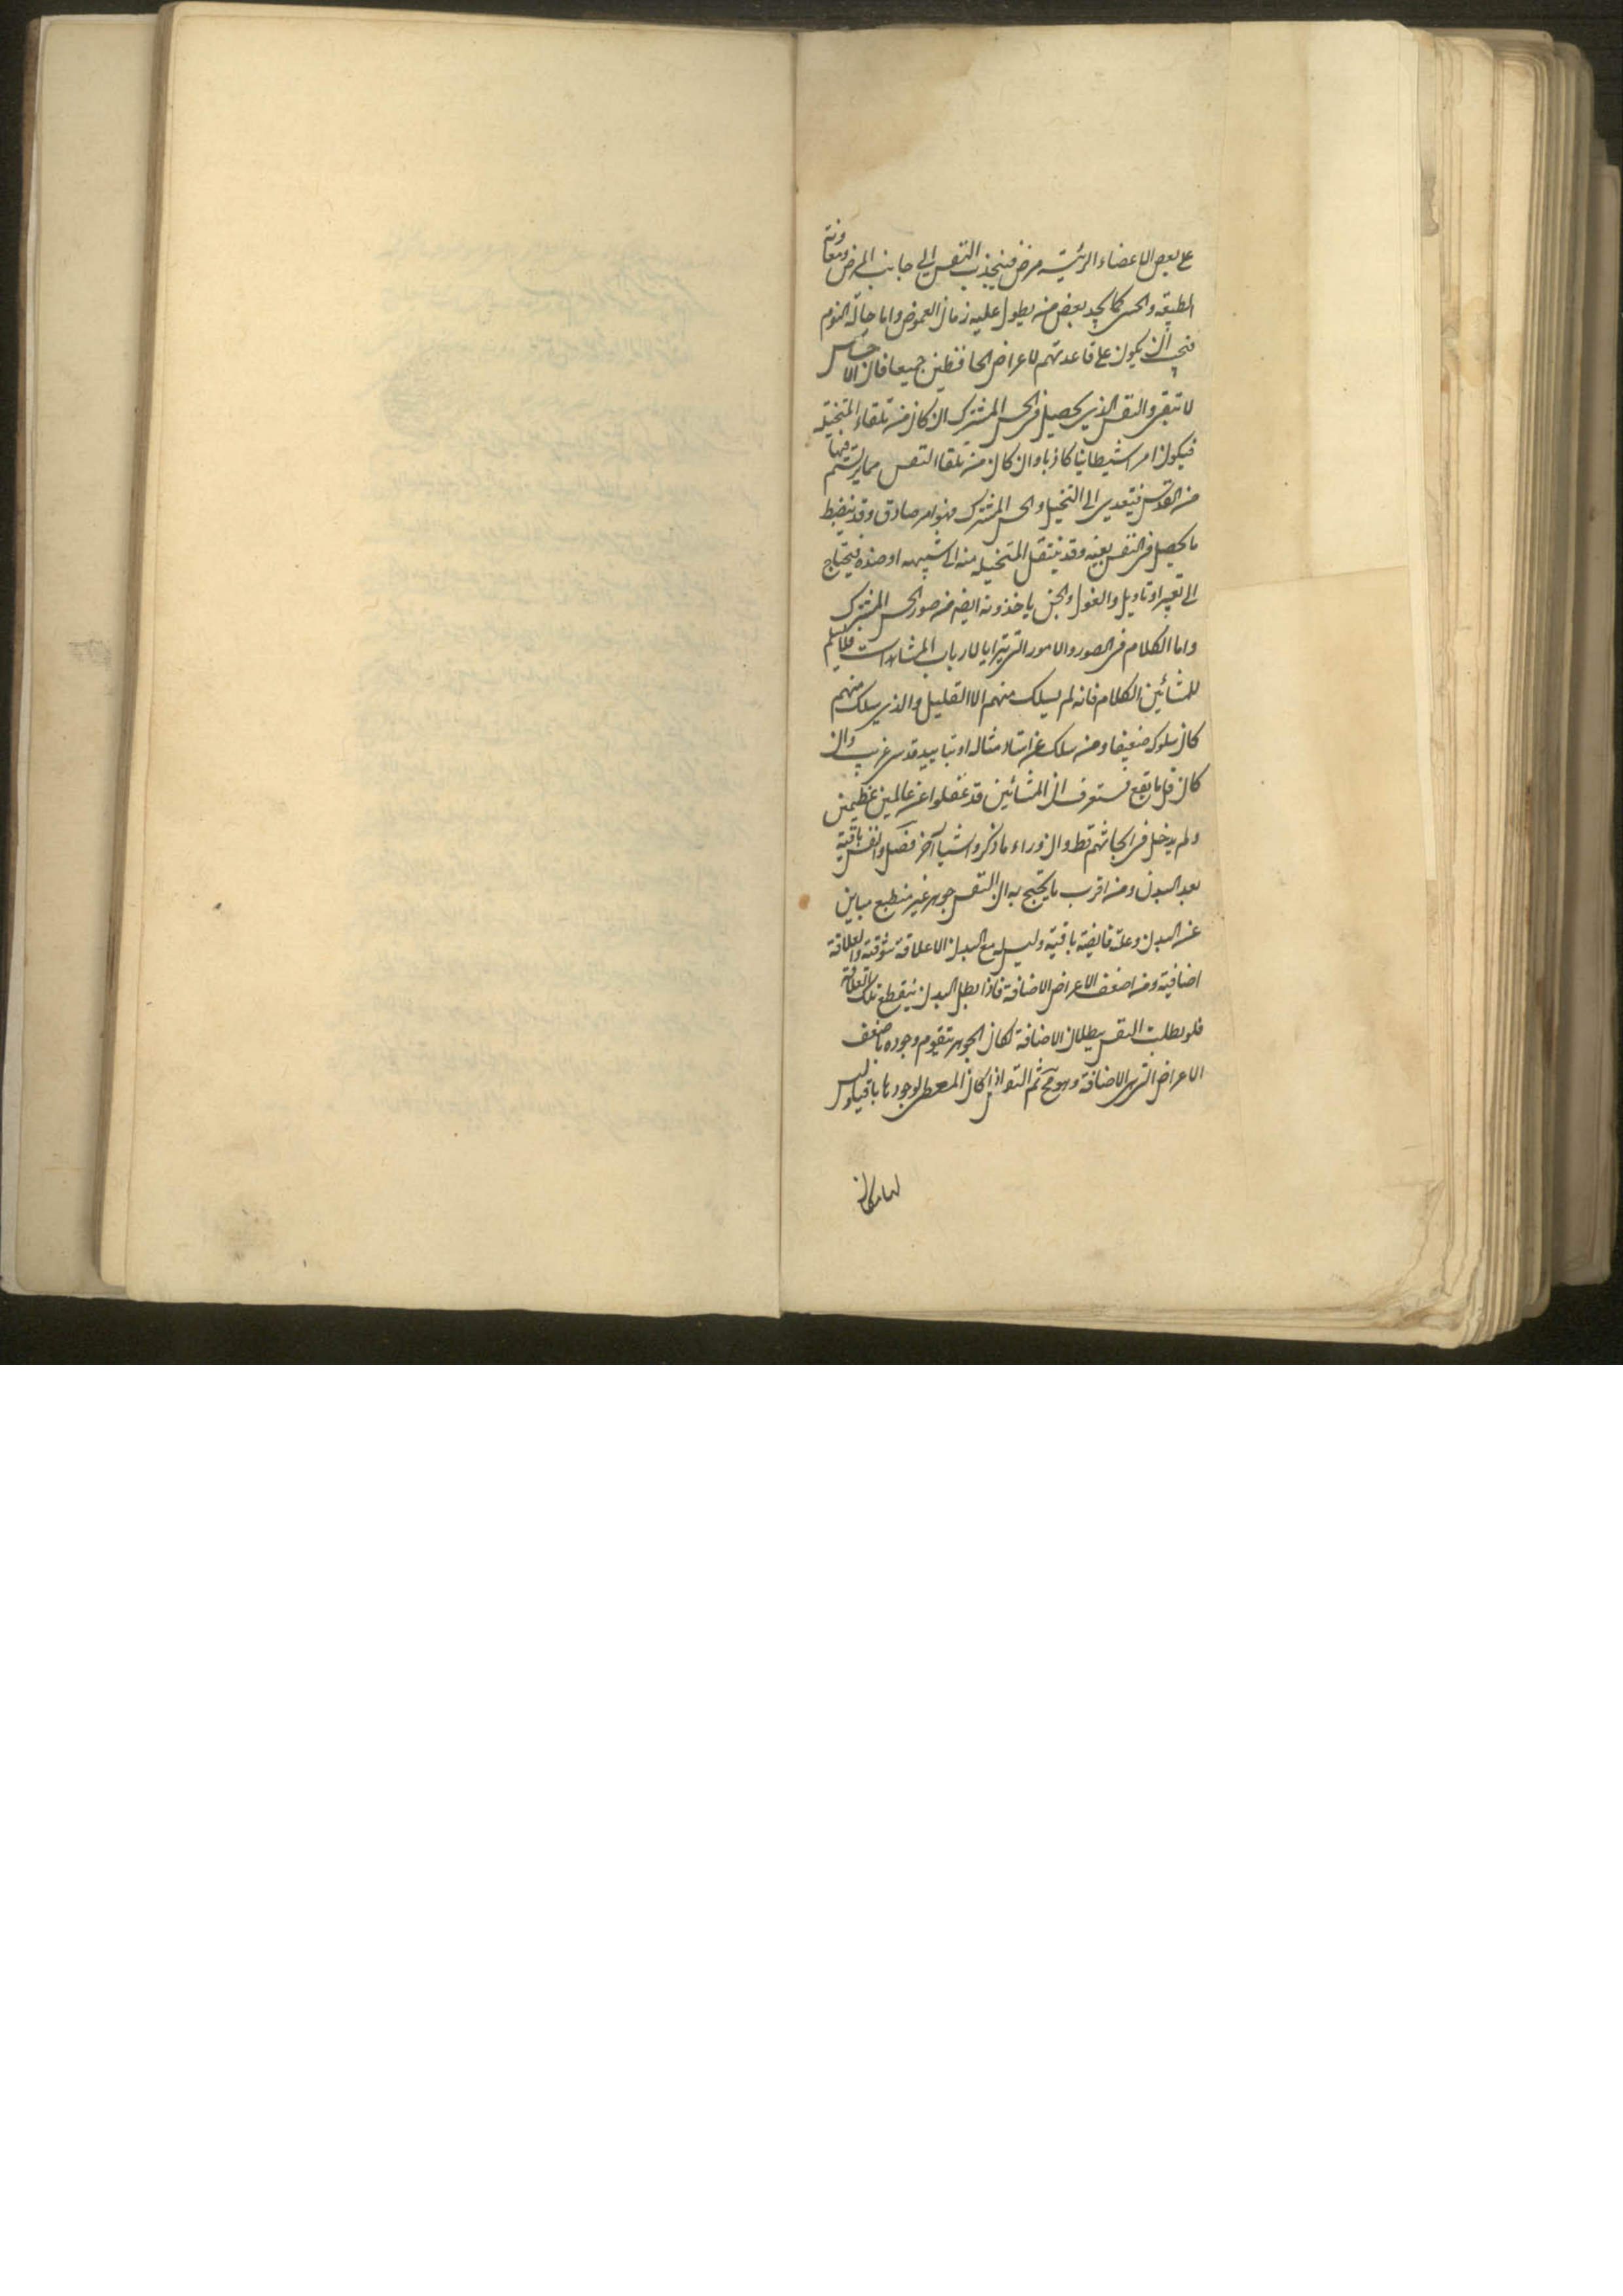 على بعض الاعضاء الرئيسة مرض فينجذب النفس الى جانب المرض ومعاونة
الطبيعة والحس كما يجد بعض من يطول عليه زمان الغموض واما حالة النوم
فيجب ان يكون على قاعدتهم لاعراض الحافظين جميعا فان الاحساس
لا تبقى والنقش الذي يحصل في الحس المشترك ان كان من تلقاء المتخيلة
فيكون امرا شيطانيا كاذبا وان كان من تلقا النفس مما يرتسم فيها
من القدس فيتعدى الى التخيل والحس المشترك فهو امر صادق وقد ينضبط
ما يحصل في النفس بعينه وقد ينتقل المتخيلة منه الى شبيهه او ضده فيحتاج
الى تعبير او تاويل والغول والجن ياخذونه ايضه من صور الحس المشترك
واما الكلام في الصور والامور التي تترايا لارباب المشاهدات فلا يسلم
للمشائين الكلام فانه لم يسلك منهم الا القليل والذي يسلك منهم
كان سلوكه ضعيفا ومن سلك عن استاد متاله او بتاييد قدسي غريب وان
كان قل ما يقع فستعرف ان المشائين قد غفلوا عن عالمين عظيمين
ولم يدخل في ابحاثهم قط وان وراء ما ذكروا اشيا آخر فصل والنفس باقية
بعد البدن ومن اقرب ما يحتج به ان النفس جوهر غير منطبع مباين
عن البدن وعلته فايضة باقية وليس مع البدن الا علاقة شوقية والعلاقة
اضافية ومن اضعف الاعراض الاضافة فاذا بطل البدن ينقطع تلك العلاقة
فلو بطلت النفس ببطلان الاضافة لكان الجوهر يتقوم وجوده باضعف
الاعراض التي هي الاضافة وهو مح ثم النفس اذا كان المعطى لوجودها باقيا وليس
لها مكان